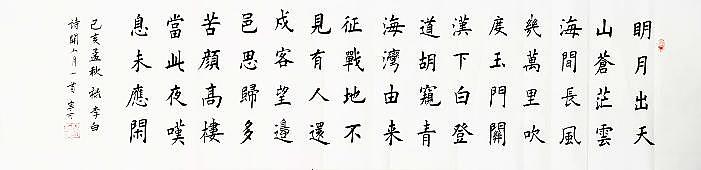 明月出天
山蒼茫雲
海間長風
幾萬里吹
度玉門關
漢下白登
道胡窺青
海灣由来
征戰地不
見有人還
戍客望邊
邑思歸多
苦顏高樓
當此夜嘆
息未應閑
己亥孟秋李白
詩關山月一首